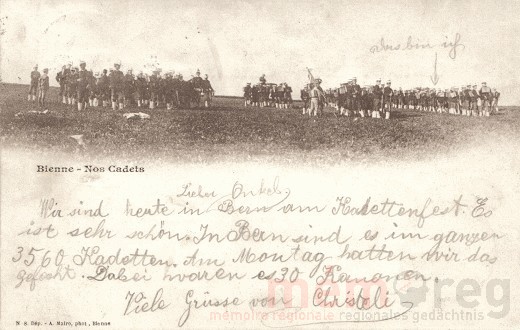 das bin ich
Bienne - Nos Cadets
Lieber Onkel,
Wir sind heute in Bern am Kadettenfest. Es
ist sehr schön. In Bern sind es im ganzen
3560 Kadetten. Am Montag hatten wir das
Dabei waren es 30 Kanonen.
Viele Grüsse von Christeli
N° 8. Dép. - A. Moire, phot., Bienne
mémreg
mémoire régionale regionales gedächtnis